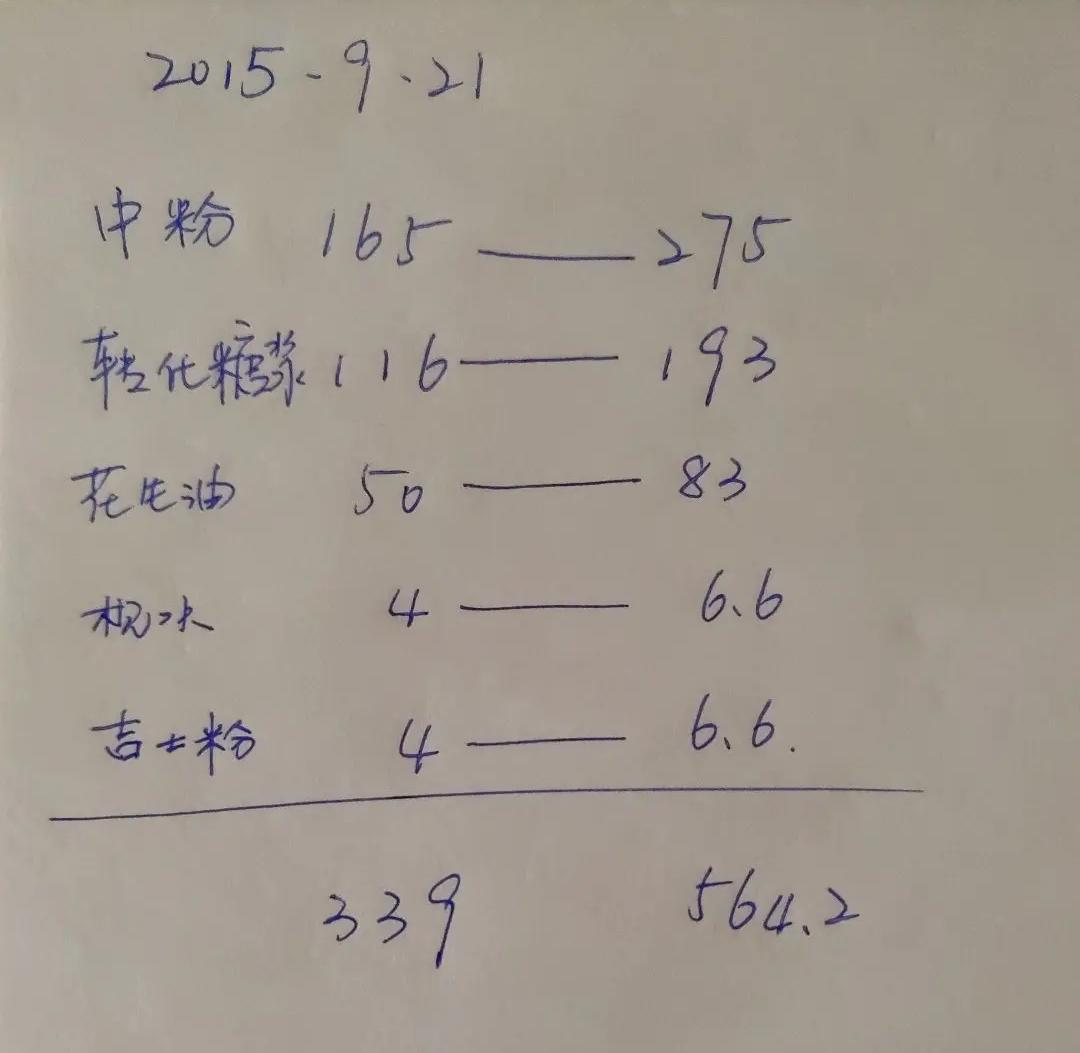 2015-9-21
中粉 165 — 275
转化糖浆 116 — 193
花生油 50 — 83
枧水 4 — 6.6
吉士粉 4 — 6.6.
339 564.2